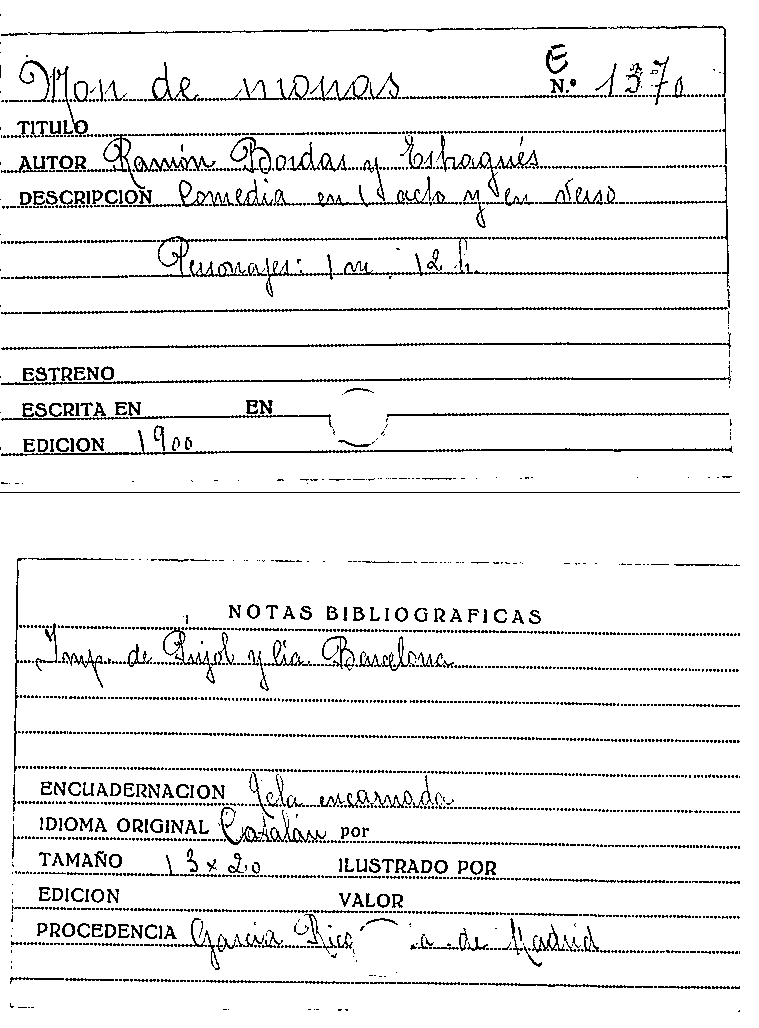 E
Món de monas N.º 1370
TITULO
AUTOR Ramón Bordas y Estragués
DESCRIPCION Comedia en 1 acto y en verso
Personajes: 1 m. 12 h.
ESTRENO
ESCRITA EN EN
EDICION 1900
NOTAS BIBLIOGRAFICAS
Imp. de Pujol y Cia Barcelona
ENCUADERNACION Tela encarnada
IDIOMA ORIGINAL Catalán por
TAMAÑO 13 x 20 ILUSTRADO POR
EDICION VALOR
PROCEDENCIA Garcia Rico a. de Madrid